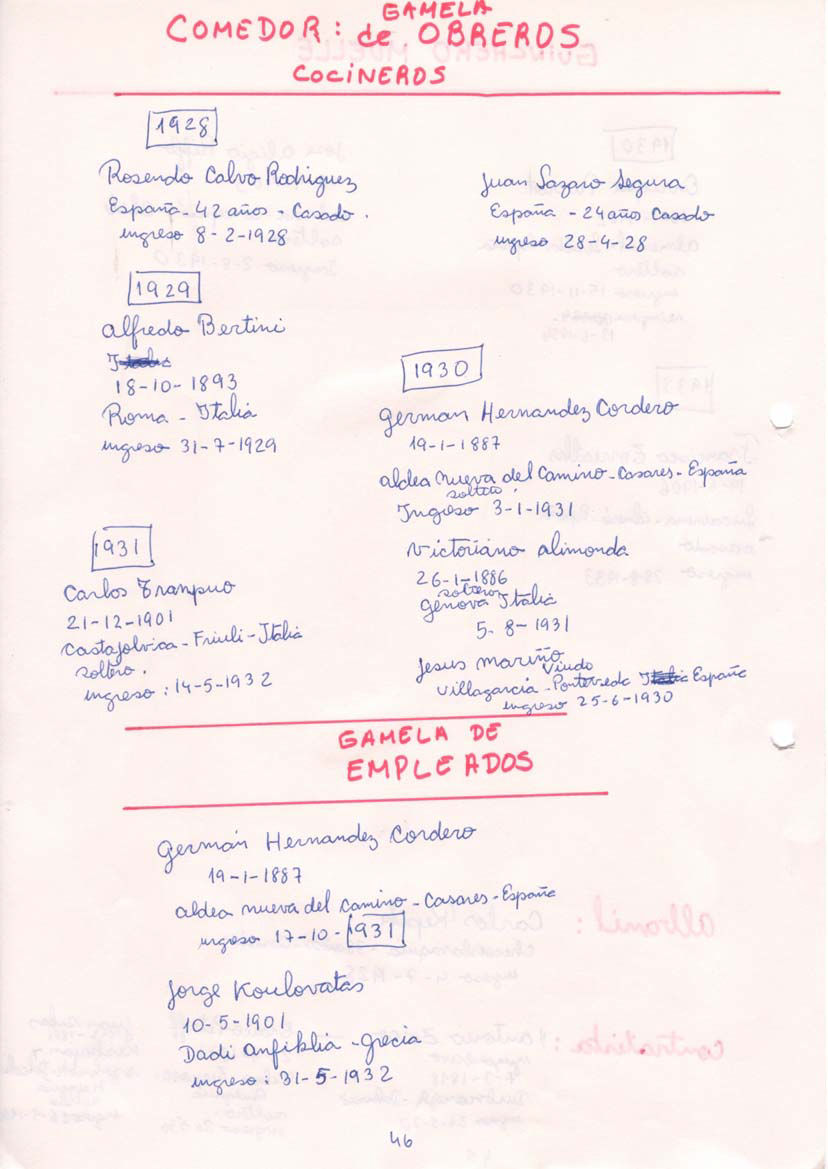 GAMELA
COMEDOR: de OBREROS
COCINEROS
1928
Rosendo Calvo Rodriguez
España - 42 años - Casado.
ingreso 8-2-1928
Juan Sazaro Segura
España - 24 años Casado
ingreso 28-4-28
1929
Alfredo Bertini
18-10-1893
Roma - Italia
ingreso 31-7-1929
1930
German Hernandez Cordero
19-1-1887
aldea nueva del Camino - Casares - España
soltero
Ingreso 3-1-1931
Victoriano Alimonda
26-1-1886
soltero
Génova Italia
5-8-1931
Jesus Mariño
Viudo
Villagarcia - Pontevedc Italia España
ingreso 25-6-1930
1931
Carlos Tranpuo
21-12-1901
Castajolvica - Friuli - Italia
soltero.
ingreso: 14-5-1932
GAMELA DE
EMPLEADOS
Germán Hernandez Cordero
19-1-1887
aldea nueva del camino - Casares - España
ingreso 17-10-1931
Jorge Koulovatas
10-5-1901
Dadi Anfiklia - Grecia
ingreso: 31-5-1932
46